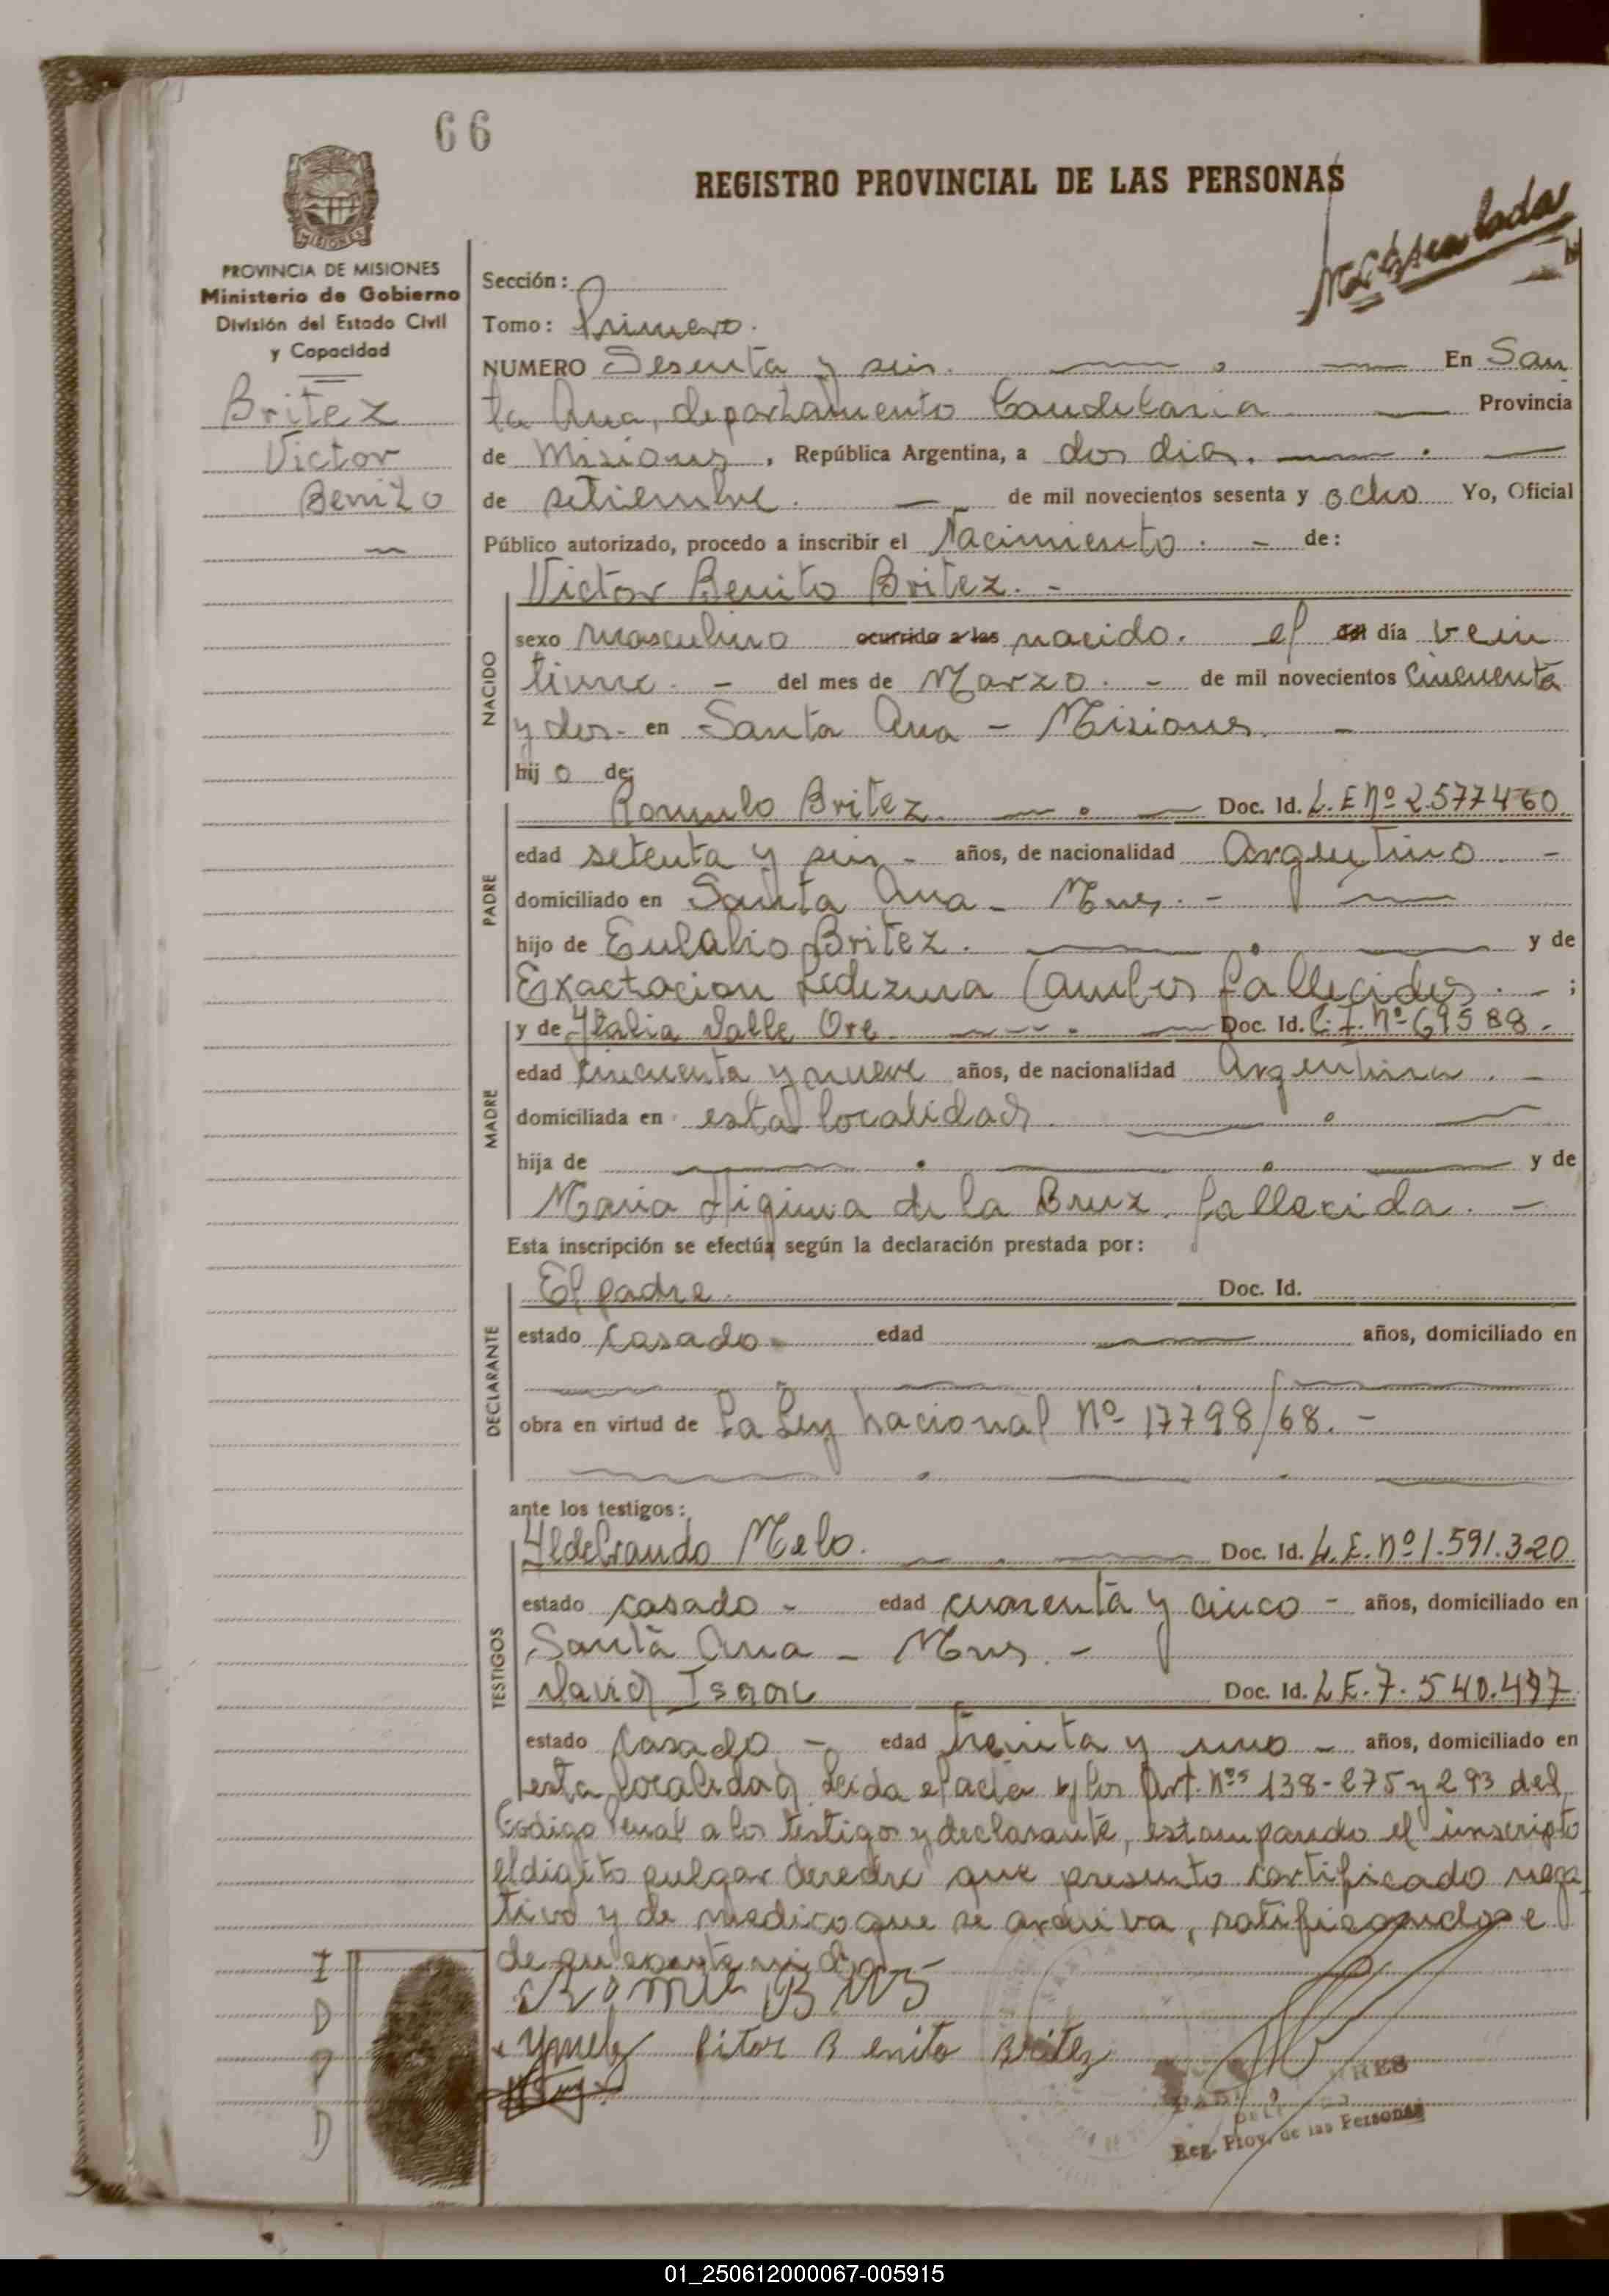 66
REGISTRO PROVINCIAL DE LAS PERSONAS
MISIONES
PROVINCIA DE MISIONES
Ministerio de Gobierno
División del Estado Civil
y Capacidad
Britez
Victor
Benito
Sección:
Tomo: Primero.
NUMERO Sesenta y seis. En San
ta Ana, departamento Candelaria Provincia
de Misiones, República Argentina, a dos dias.
de setiembre. de mil novecientos sesenta y ocho Yo, Oficial
Público autorizado, procedo a inscribir el Nacimiento. - de:
Victor Benito Britez. -
NACIDO
sexo masculino ocurrido a las nacido. el del día vein
tiune. - del mes de Marzo. - de mil novecientos cincuenta
y dos. - en Santa Ana - Misiones. -
hijo de:
PADRE
Romulo Britez. Doc. Id. L. E Nº 2.577460
edad setenta y seis - años, de nacionalidad Argentino -
domiciliado en Santa Ana - Mnes. -
hijo de Eulalio Britez. y de
Exactacion Ledezma (ambos fallecidos. - ;
MADRE
y de Ytalia Valle Ore Doc. Id. C. I. Nº 69588.-
edad cincuenta y nueve años, de nacionalidad Argentina. -
domiciliada en esta localidad
hija de y de
Maria Higinia de la Cruz. fallecida. -
Esta inscripción se efectúa según la declaración prestada por:
DECLARANTE
El padre. Doc. Id.
estado casado - edad años, domiciliado en
obra en virtud de La Ley Nacional Nº 17798/68. -
ante los testigos:
TESTIGOS
Yldebrando Melo. Doc. Id. L. E. Nº 1.591.320
estado casado - edad cuarenta y cinco - años, domiciliado en
Santa Ana - Mnes. -
David Isaac Doc. Id. L E. 7.540.497
estado casado - edad treinta y uno - años, domiciliado en
esta localidad Leida el acta y los Art. Nos 138-275 y 293 del
Codigo Penal a los testigos y declarante, estampando el inscripto
el digito pulgar derecho que presento certificado nega
tivo y de medico que se archiva, ratificandose
de su contenido
I
D
P
D
Vitor Benito Britez
Reg. Prov. de las Personas
01_250612000067-005915